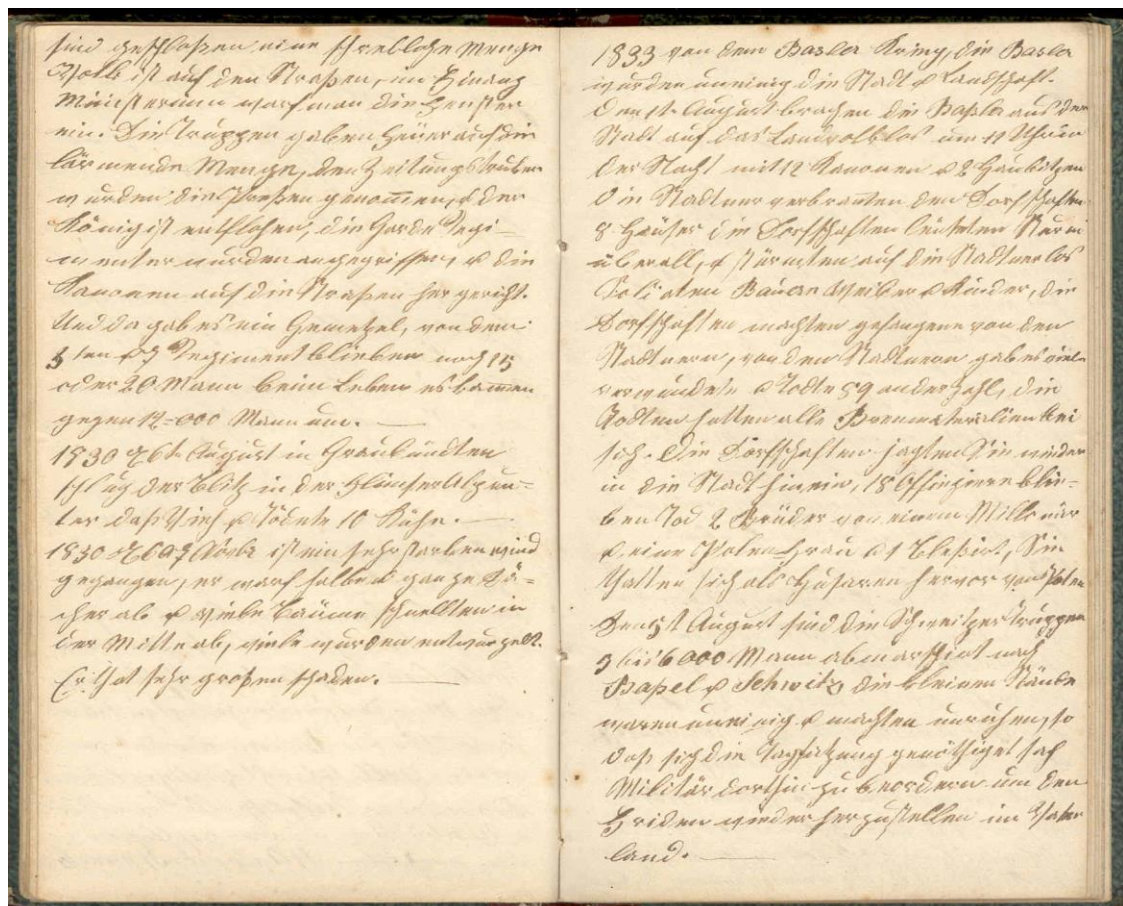 sind geschloßen eine schreckliche Menge
Volk ist auf den Straßen, im Finanz
Ministerium warf man die Fenster
ein. Die Truppen gaben Feuer auf die
lärmende Menge, den Zeitungsschreibern
wurden die Preßen genom̅en, u der
König ist entflohen, die Garde Regi-
menter wurden angegriffen, u die
Kanonen auf die Straßen her gericht.
Und da gab es ein Gemetzel, von dem
5ten Regiment blieben noch 15
oder 20 Mann beim Leben es kam̅en
gegen 12=000 Mann um. —
1830 26t. August in Graubündten
schlug der Blitz in der Alp un=
ter das Vieh u Tödete 10 Kühe. —
1830 ist ein sehr starker wind
gegangen, er warf halbe u ganze Dä=
cher ab u viele Bäume schnellten in
der Mitte ab, viele wurden entwurzelt.
Er that sehr großen schaden. —
1833 von dem Basler Krieg, die Basler
wurden uneinig die Stadt u Landschaft.
Den t. August brachen die Baßler aus der
Stadt auf das Landvolk los um 11 Uhr in
der Nacht mit 12 Kanonen u 2 Haubitzen
Die Stadtner verbranten den Dorfschaften
8 Häuser die Dorfschaften läuteten Sturm
überall, u stürmten auf die Stadtner los
Soldaten Bauern Weiber u Kinder, die
Dorfschaften machten gefangene von den
Stadtnern, von den Stadtnern gab es viele
verwundete u Todte 59 an der Zahl, die
Todten hatten alle Brenmaterialien bei
sich. Die Dorfschaften jagten Sie wieder
in die Stadt hinein, 18 Offiziere blie=
ben Tod 2 Brüder von einem Millionär
u eine Frau u 1 Sie
thatten sich als Husaren hervor
Den t August sind die Schweitzer Truppen
5 bis 6000 Mann abmarschirt nach
Baßel u Schwitz die kleinen Stände
waren uneinig u machten unruhen, so
daß sich die Tagsatzung genöthiget sah
Militär dorthin zu beordern um den
Friden wieder herzustellen im Vater
land. —